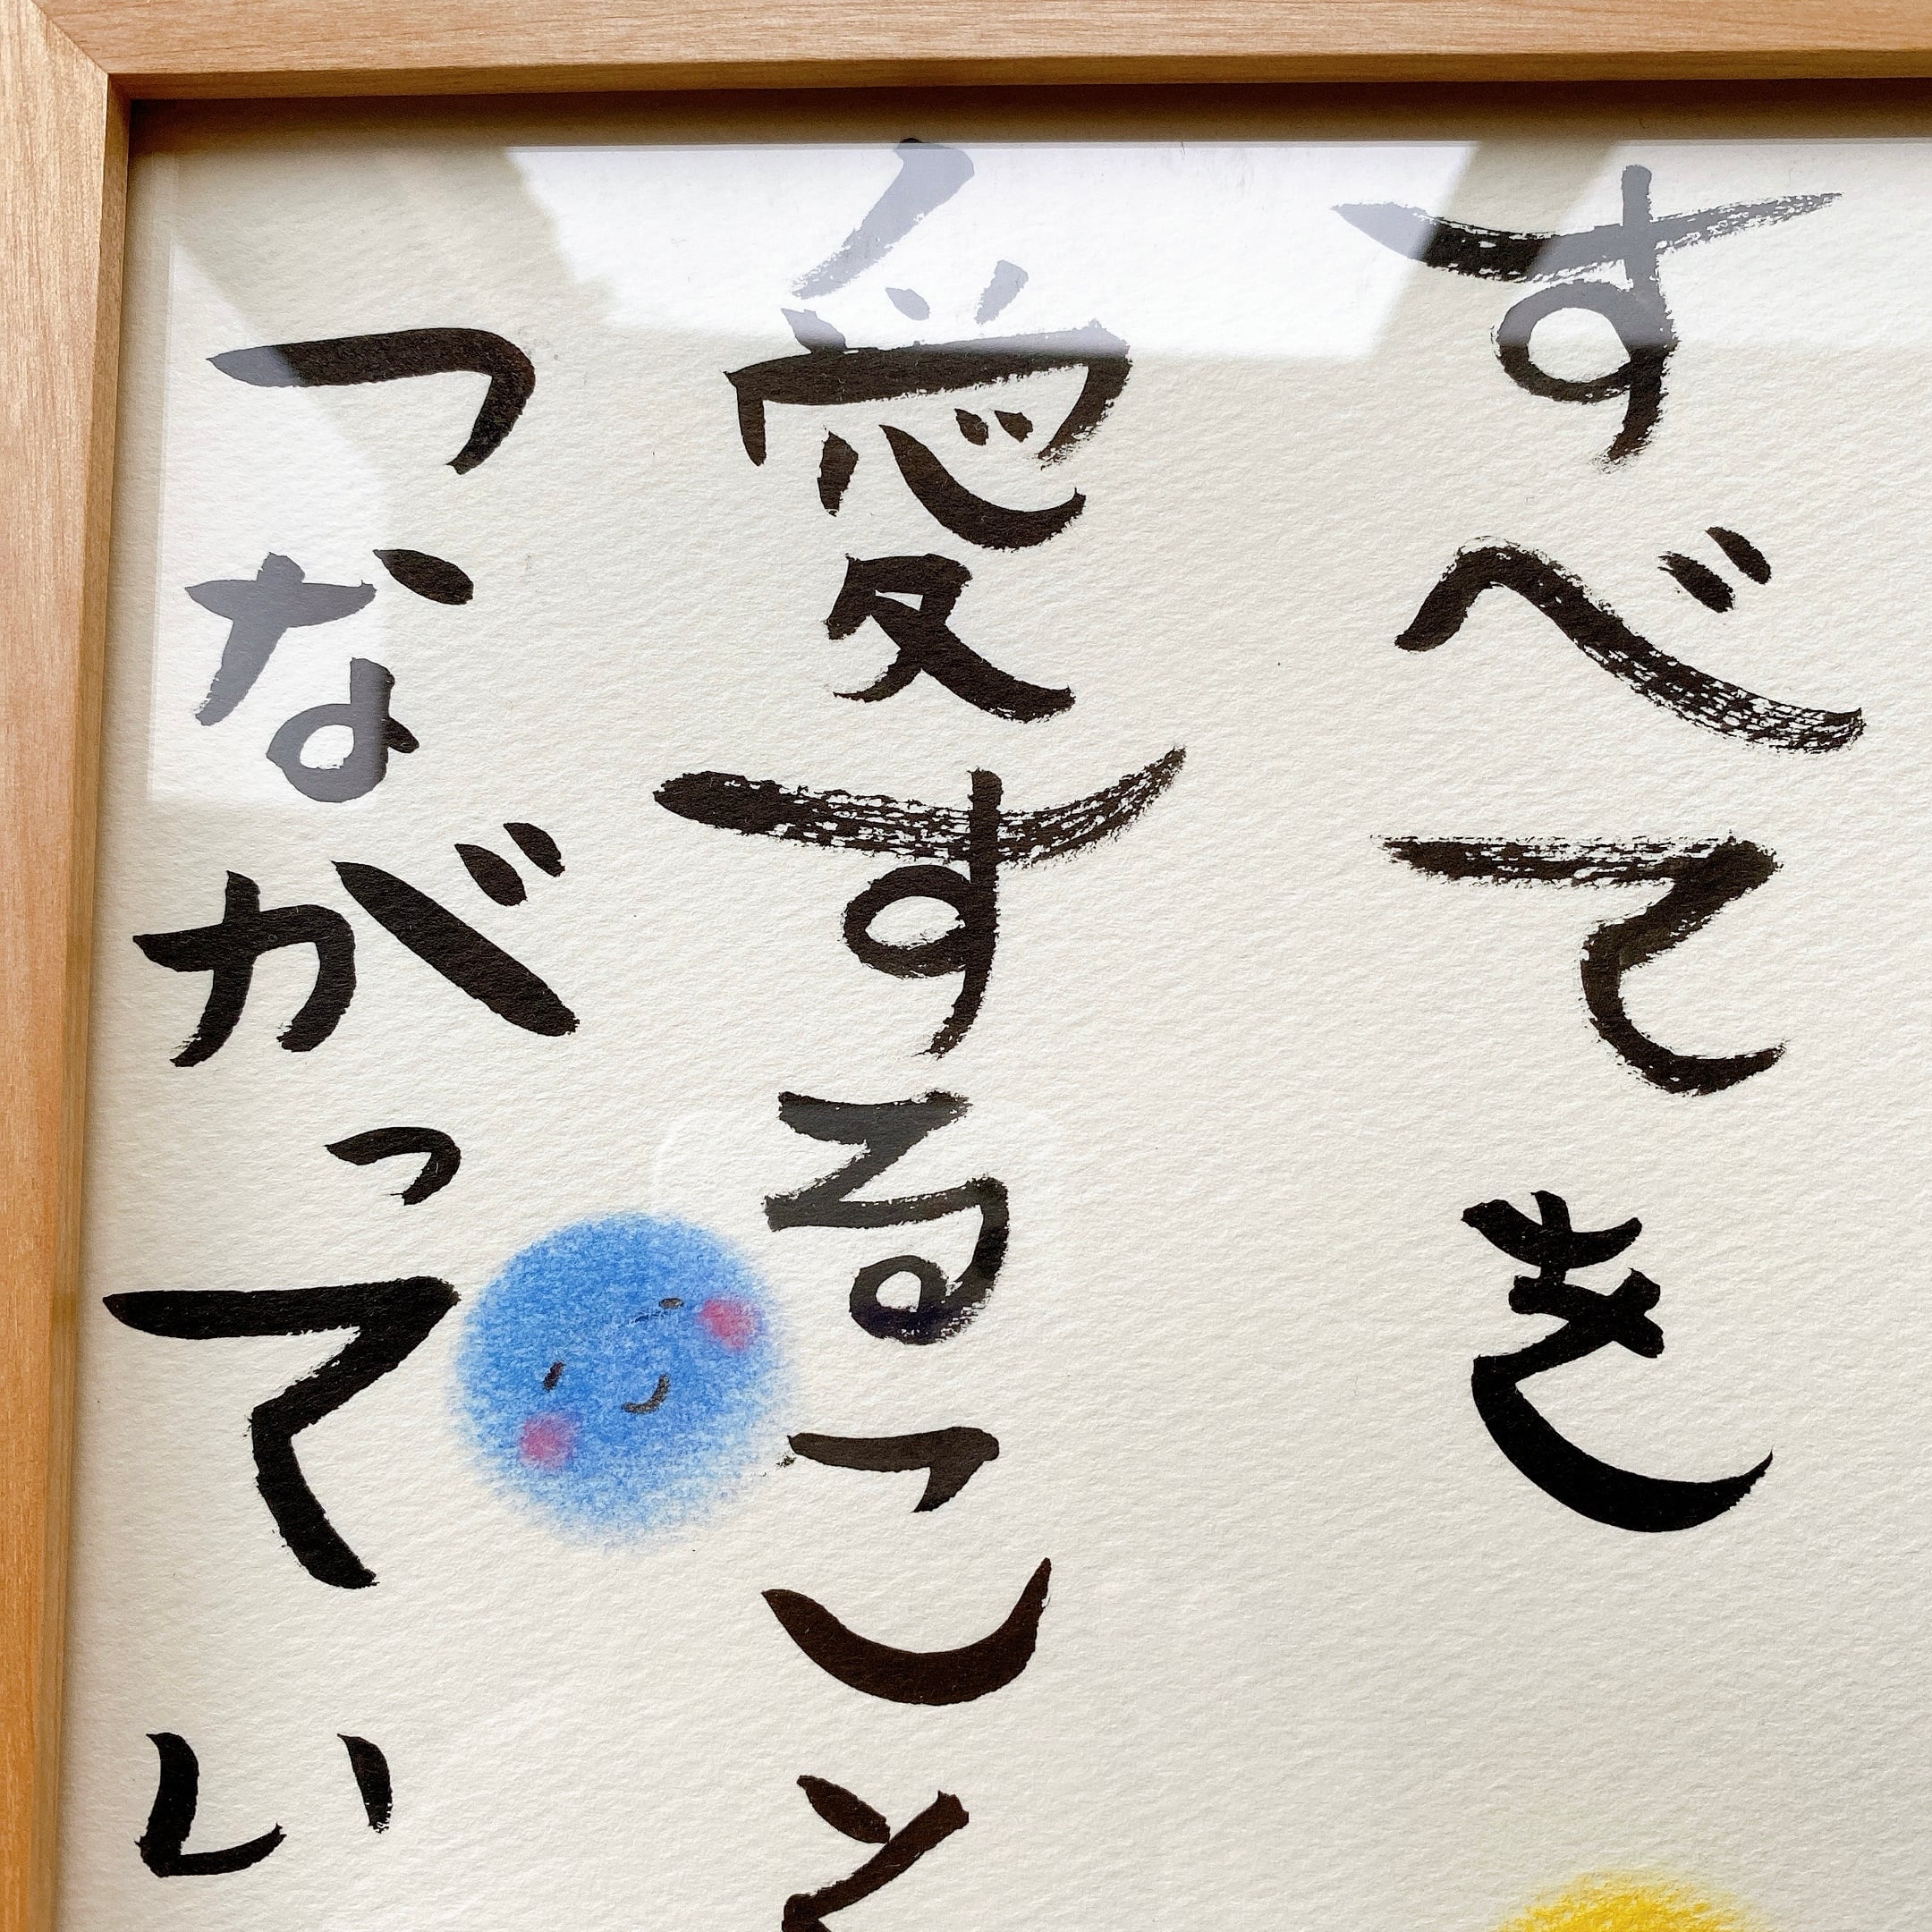 すべてを
愛すること
つながってい